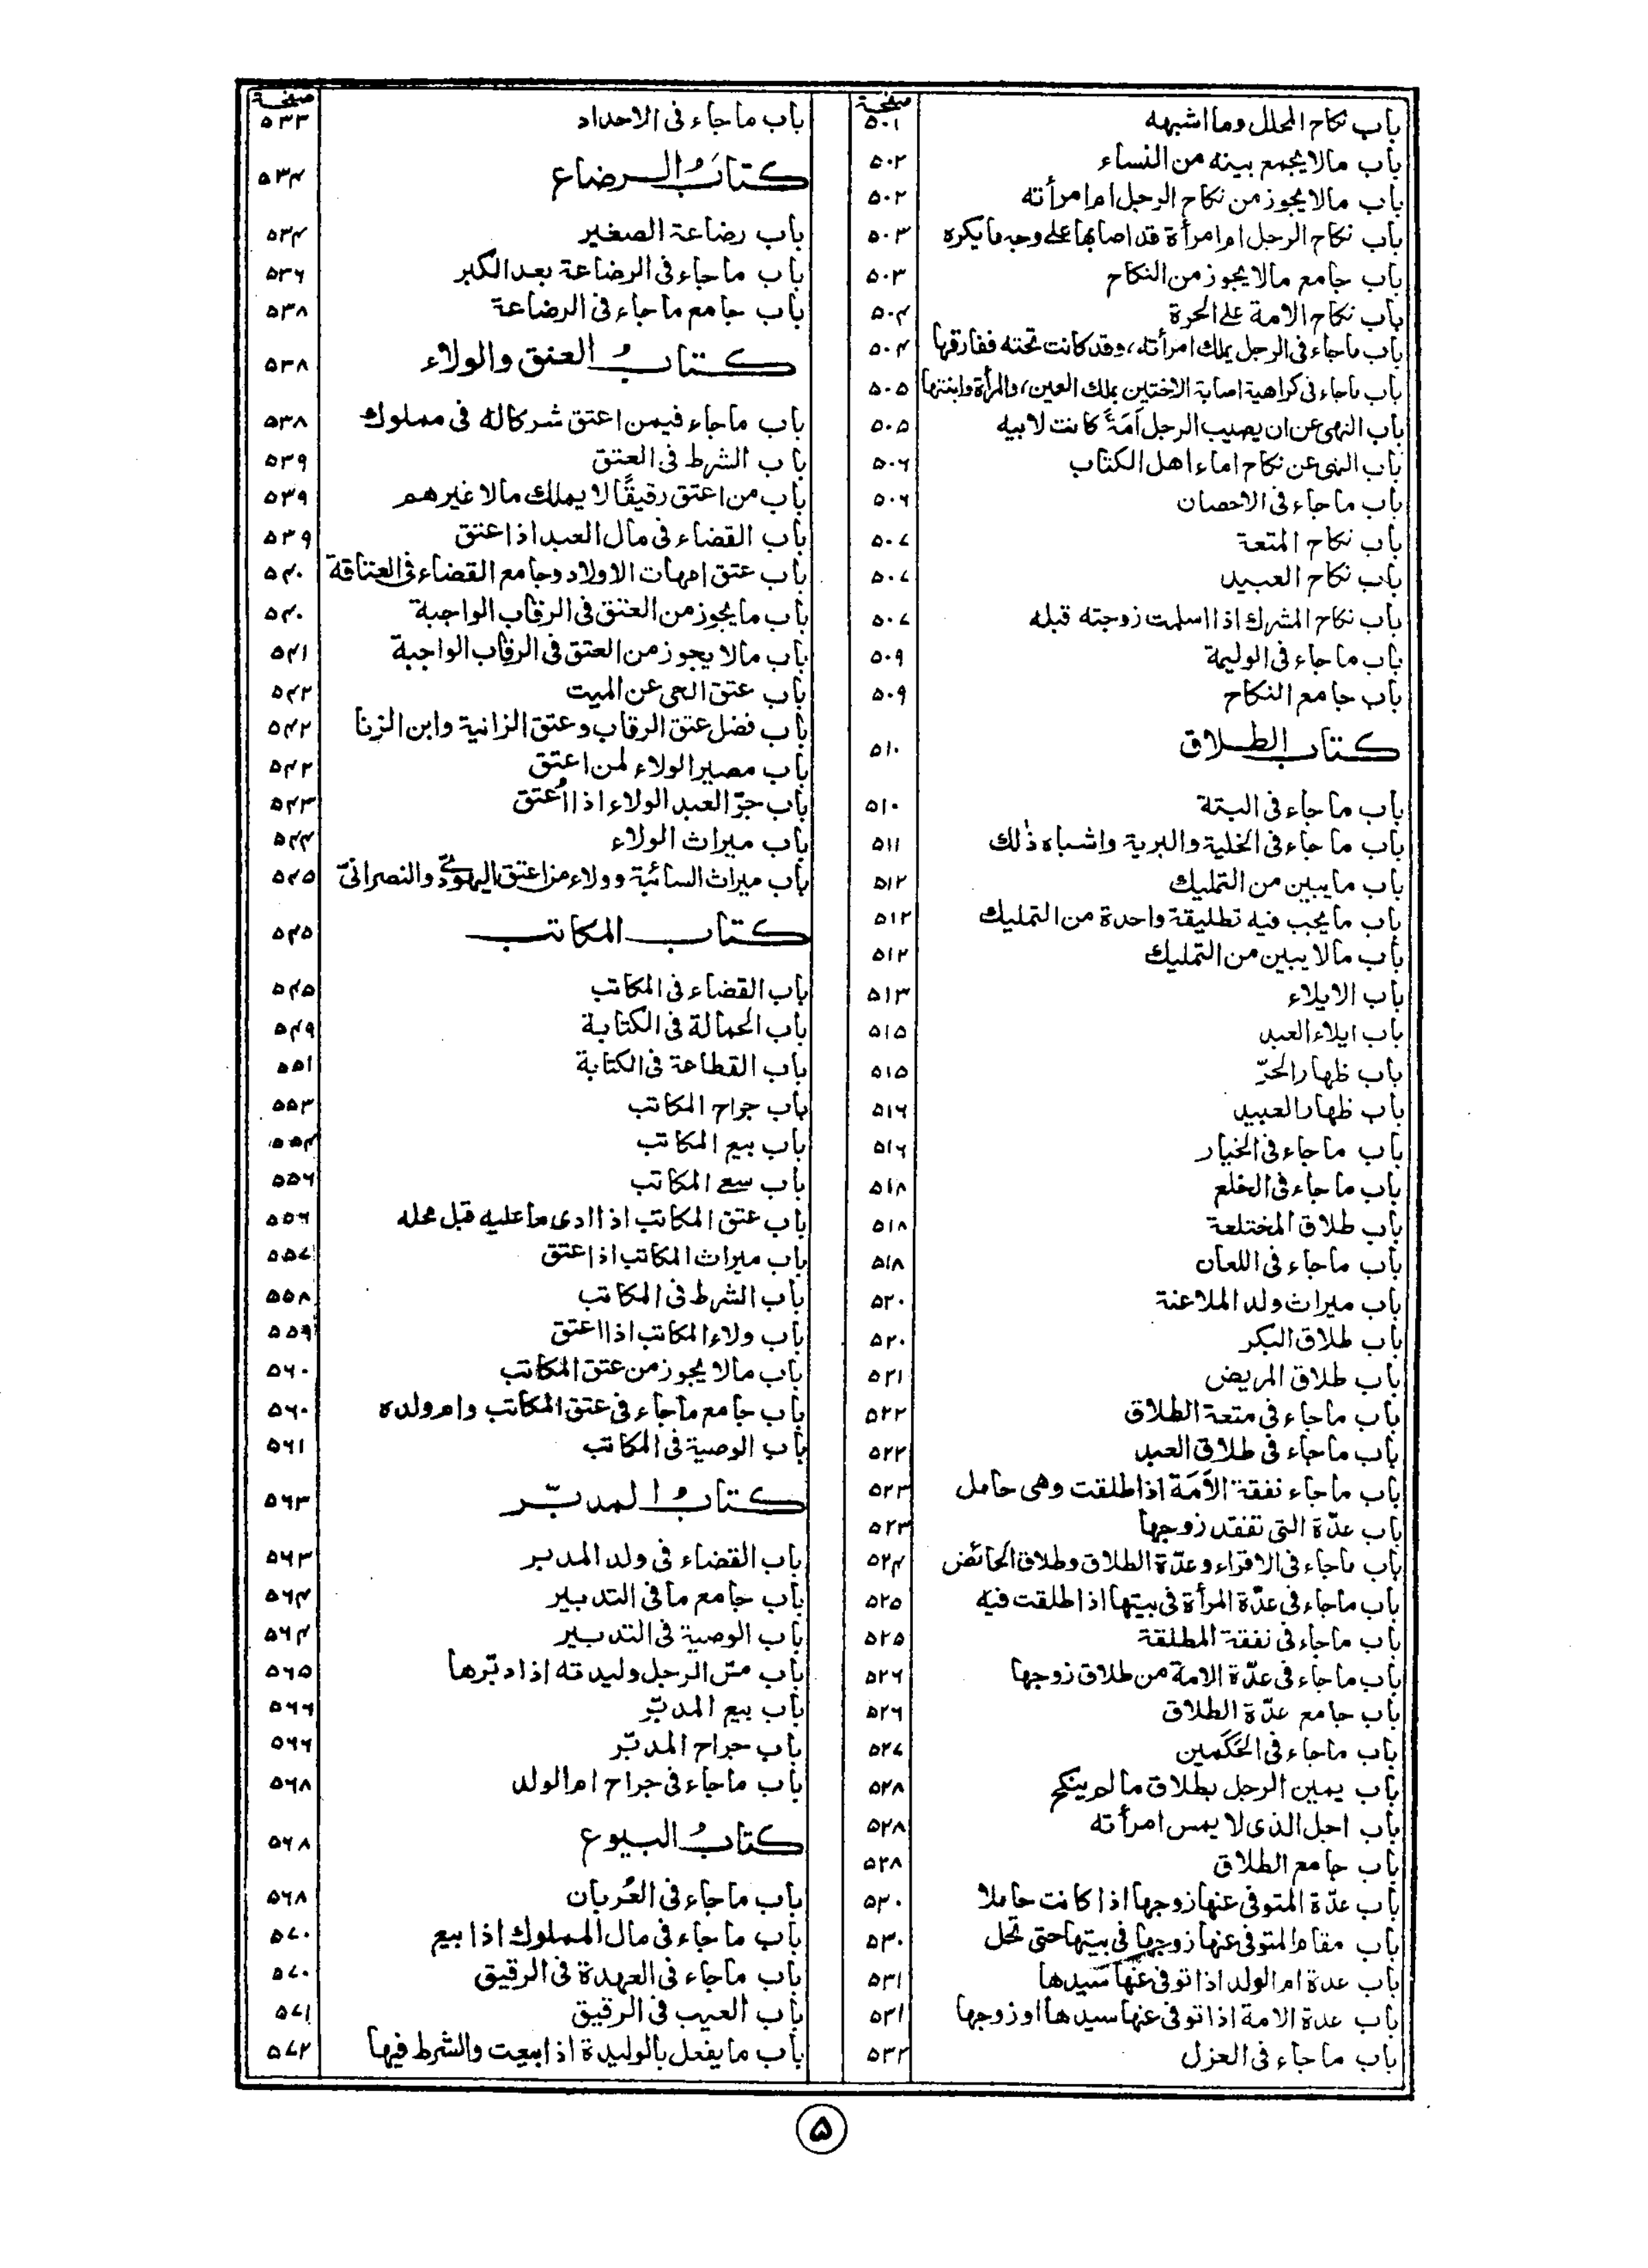 صفحة
باب نكاح المحلل وما اشبهه ۵۰۱
باب مالا يجمع بينه من النساء ۵۰۲
باب مالا يجوز من نكاح الرجل ام امرأته ۵۰۲
باب نكاح الرجل ام امرأة قد اصابها على وجه ما يكره ۵۰۳
باب جامع مالا يجوز من النكاح ۵۰۳
باب نكاح الامة على الحرة ۵۰۴
باب ماجاء فى الرجل يملك امرأته، وقد كانت تحته ففارقها ۵۰۴
باب ماجاء فى كراهية اصابة الاختين بملك العين، والمرأة وابنتها ۵۰۵
باب النهى عن ان يصيب الرجل اَمَةً كانت لابيه ۵۰۵
باب النهى عن نكاح اماء اهل الكتاب ۵۰۶
باب ماجاء فى الاحصان ۵۰۶
باب نكاح المتعة ۵۰۷
باب نكاح العبيد ۵۰۷
باب نكاح المشرك اذا اسلمت زوجته قبله ۵۰۷
باب ماجاء فى الوليمة ۵۰۹
باب جامع النكاح ۵۰۹
كتاب الطلاق ۵۱۰
باب ماجاء فى البتة ۵۱۰
باب ماجاء فى الخلية والبرية واشباه ذٰلك ۵۱۱
باب مايبين من التمليك ۵۱۲
باب مايجب فيه تطليقة واحدة من التمليك ۵۱۲
باب مالا يبين من التمليك ۵۱۲
باب الايلاء ۵۱۳
باب ايلاء العبد ۵۱۵
باب ظهار الحرّ ۵۱۵
باب ظهار العبيد ۵۱۶
باب ماجاء فى الخيار ۵۱۶
باب ماجاء فى الخلع ۵۱۸
باب طلاق المختلعة ۵۱۸
باب ماجاء فى اللعان ۵۱۸
باب ميراث ولد الملاعنة ۵۲۰
باب طلاق البكر ۵۲۰
باب طلاق المريض ۵۲۱
باب ماجاء فى متعة الطلاق ۵۲۲
باب ماجاء فى طلاق العبد ۵۲۲
باب ماجاء نفقة الاَمَة اذا طلقت وهى حامل ۵۲۳
باب عدّة التى تفقد زوجها ۵۲۳
باب ماجاء فى الاقراء وعدّة الطلاق وطلاق الحائض ۵۲۴
باب ماجاء فى عدّة المرأة فى بيتها اذا طلقت فيه ۵۲۵
باب ماجاء فى نفقة المطلقة ۵۲۵
باب ماجاء فى عدّة الامة من طلاق زوجها ۵۲۶
باب جامع عدّة الطلاق ۵۲۶
باب ماجاء فى الحَكَمين ۵۲۷
باب يمين الرجل بطلاق مالم ينكح ۵۲۸
باب اجل الذى لا يمس امرأته ۵۲۸
باب جامع الطلاق ۵۲۸
باب عدّة المتوفى عنها زوجها اذا كانت حاملا ۵۳۰
باب مقام المتوفى عنها زوجها فى بيتها حتى تحل ۵۳۰
باب عدة ام الولد اذا توفى عنها سيدها ۵۳۱
باب عدة الامة اذا توفى عنها سيدها او زوجها ۵۳۱
باب ماجاء فى العزل ۵۳۲
صفحة
باب ماجاء فى الاحداد ۵۳۳
كتابُ الرضاع ۵۳۴
باب رضاعة الصغير ۵۳۴
باب ماجاء فى الرضاعة بعد الكبر ۵۳۶
باب جامع ماجاء فى الرضاعة ۵۳۸
كتابُ العتق والولاء ۵۳۸
باب ماجاء فيمن اعتق شركاله فى مملوك ۵۳۸
باب الشرط فى العتق ۵۳۹
باب من اعتق رقيقًا لا يملك مالا غيرهم ۵۳۹
باب القضاء فى مال العبد اذا عتق ۵۳۹
باب عتق امهات الاولاد وجامع القضاء فى العتاقة ۵۴۰
باب مايجوز من العتق فى الرقاب الواجبة ۵۴۰
باب مالا يجوز من العتق فى الرقاب الواجبة ۵۴۱
باب عتق الحى عن الميت ۵۴۲
باب فضل عتق الرقاب وعتق الزانية وابن الزنا ۵۴۲
باب مصير الولاء لمن اعتق ۵۴۲
باب جرّ العبد الولاء اذا اُعتق ۵۴۳
باب ميراث الولاء ۵۴۴
باب ميراث السائبة وولاء من اعتق اليهودىّ والنصرانىّ ۵۴۵
كتاب المكاتب ۵۴۵
باب القضاء فى المكاتب ۵۴۵
باب الحمالة فى الكتابة ۵۴۹
باب القطاعة فى الكتابة ۵۵۱
باب جراح المكاتب ۵۵۳
باب بيع المكاتب ۵۵۴
باب سعى المكاتب ۵۵۶
باب عتق المكاتب اذا ادى ما عليه قبل محله ۵۵۶
باب ميراث المكاتب اذا عتق ۵۵۷
باب الشرط فى المكاتب ۵۵۸
باب ولاء المكاتب اذا اعتق ۵۵۹
باب مالا يجوز من عتق المكاتب ۵۶۰
باب جامع ماجاء فى عتق المكاتب وام ولده ۵۶۰
باب الوصية فى المكاتب ۵۶۱
كتابُ المدبّر ۵۶۳
باب القضاء فى ولد المدبر ۵۶۳
باب جامع ما فى التدبير ۵۶۴
باب الوصية فى التدبير ۵۶۴
باب مسّ الرجل وليدته اذا دبّرها ۵۶۵
باب بيع المدبّر ۵۶۶
باب جراح المدبّر ۵۶۶
باب ماجاء فى جراح ام الولد ۵۶۸
كتابُ البيوع ۵۶۸
باب ماجاء فى العُربان ۵۶۸
باب ماجاء فى مال المملوك اذا بيع ۵۷۰
باب ماجاء فى العهدة فى الرقيق ۵۷۰
باب العيب فى الرقيق ۵۷۱
باب مايفعل بالوليدة اذا بيعت والشرط فيها ۵۷۲
۵